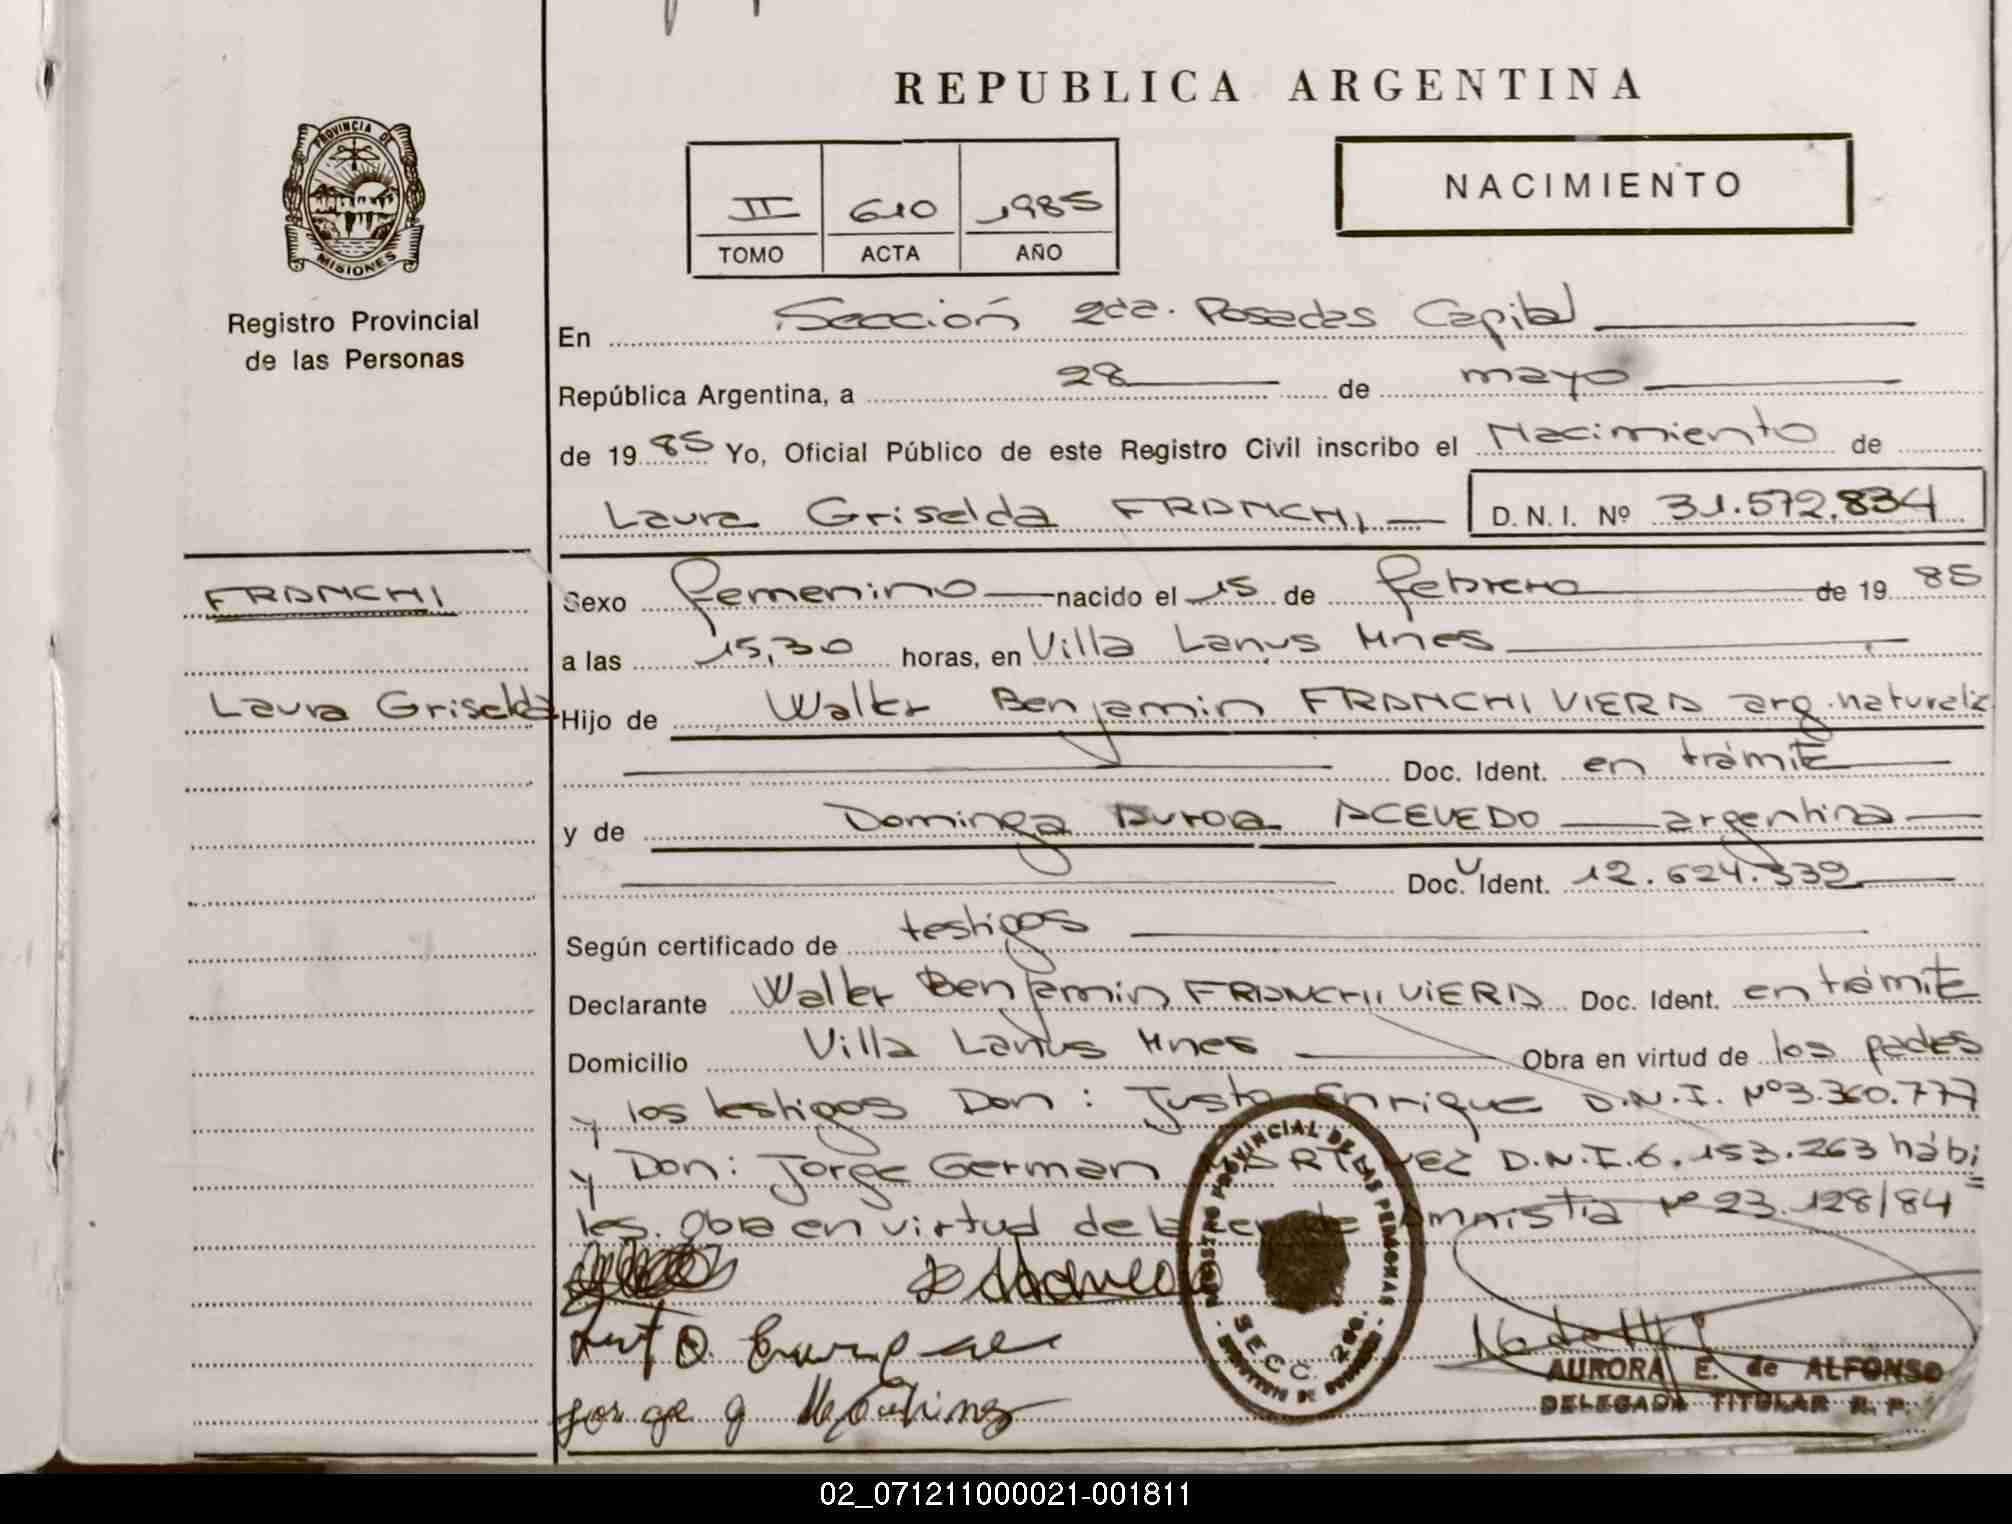 REPUBLICA ARGENTINA
PROVINCIA DE
MISIONES
Registro Provincial
de las Personas
II 610 1985
TOMO ACTA AÑO
NACIMIENTO
En Sección 2da. Posadas Capital
República Argentina, a 28 de mayo
de 1985 Yo, Oficial Público de este Registro Civil inscribo el Nacimiento de
Laura Griselda FRANCHI D. N. I. Nº 31.572.834
FRANCHI
Laura Griselda
Sexo femenino nacido el 15 de febrero de 1985
a las 15,30 horas, en Villa Lanus Mnes
Hijo de Walter Benjamin FRANCHI VIERA arg. naturaliz
Doc. Ident. en trámite
y de Dominga ACEVEDO argentina
Doc. Ident. 12.624.339
Según certificado de testigos
Declarante Walter Benjamin FRANCHI VIERA Doc. Ident. en trámite
Domicilio Villa Lanus Mnes Obra en virtud de los padres
y los testigos Don: Justo Enrique D.N.I. Nº 3.360.777
y Don: Jorge German D.N.I. 6.153.263 hábi
les. Obra en virtud de la Ley de Amnistia Nº 23.128/84
REGISTRO PROVINCIAL DE LAS PERSONAS
SECC. 2da.
AURORA E. de ALFONSO
DELEGADA TITULAR R. P.
02_071211000021-001811